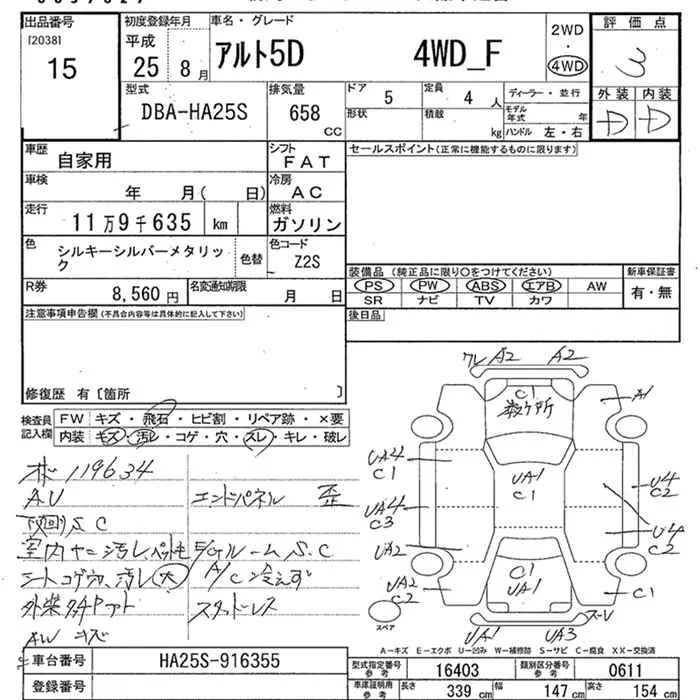 出品番号 初度登録年月 車名・グレード 2WD 評価点
[2038] 平成 ・ 3
15 25 8月 アルト5D 4WD_F 4WD
外装 内装
D D
型式 排気量 ドア 5 定員 4人 ディーラー・並行
DBA-HA25S 658 CC 形状 積載 kg モデル年式 年
ハンドル 左・右
車歴 自家用 シフト FAT セールスポイント(正常に機能するものに限ります)
車検 年 月( 日) 冷房 AC
走行 11万9千635 km 燃料 ガソリン
色 シルキーシルバーメタリック 色替 色コード Z2S
装備品(純正品に限り○をつけてください) 新車保証書
R券 8,560円 名変通知期限 月 日
PS PW ABS エアB AW 有・無
SR ナビ TV カワ
注意事項申告欄(不具合内容等は具体的に記入して下さい) 後日品
修復歴 有〔箇所 〕
検査員記入欄 FW キズ・飛石・ヒビ割・リペア跡・×要
内装 キズ・汚レ・コゲ・穴・スレ・キレ・破レ
119634
AU エンドパネル 歪
下回りS.C
室内ヤニ汚レ ルームS.C
シートコゲ穴、汚レ(大) A/C冷えず
スタッドレス
AW キズ
ワレ A2 A2
C1
数ヶ所
A1
UA4
C1
UA1
C1
U4
C2
UA4
C3
U4
C2
UA2
C1
UA1
UA2
C2
C1
スペア
UA1 UA3 スーレ
A-キズ E-エクボ U-凹み W-補修跡 S-サビ C-腐食 XX-交換済
車台番号 HA25S-916355 型式指定番号 参考 16403 類別区分番号 参考 0611
登録番号 車庫証明用 参考 長さ 339cm 幅 147cm 高さ 154cm